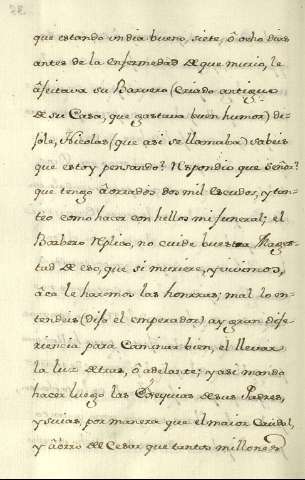 28.
que estando un dia bueno, siete, ô ocho dias
antes de la enfermedad de que murio, le
âfeitava su Barvero (criado antiguo
de su Casa, que gastava buen humor) di-
jole, Nicolas (que asi se llamaba) sabeis
que estoy pensando? Respondio que Señor?
que tengo âorrados dos mil Escudos, y tan-
teo como hacer con hellos mi funeral; el
Barbero replico, no cuide buestra Mages-
tad de eso, que si muriere, y vivimos,
âca le haremos las honrras; mal lo en-
tendeis (dijo el emperador) ay gran dife-
riencia para Caminar bien, el llevar
la luz detras, ô adelante; y asi mando
hacer luego las Osequias de sus Padres,
y suias, por manera que el maior Caudal,
y âorro de Cesar que tantos millones